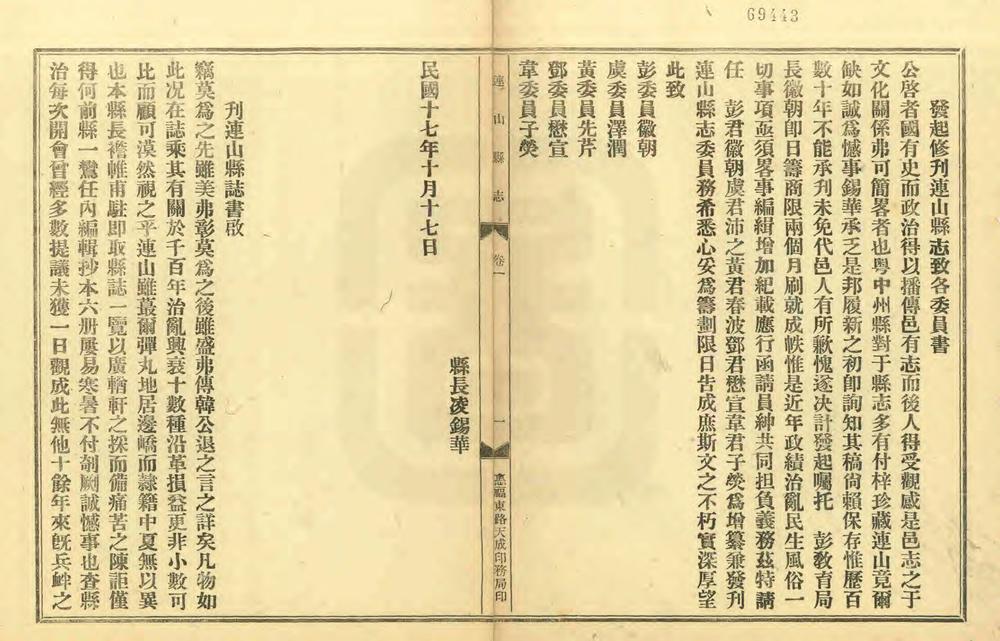 69443
發起修刋連山縣志致各委員書
公啓者國有史而政治得以播傳邑有志而後人得受觀感是邑志之于
文化關係弗可簡畧者也粤中州縣對于縣志多有付梓珍藏連山竟爾
缺如誠爲憾事錫華承乏是邦履新之初卽詢知其稿尙賴保存惟歷百
數十年不能承刋未免代邑人有所歉愧遂决計發起囑托　彭敎育局
長徽朝卽日籌商限兩個月刷就成帙惟是近年政績治亂民生風俗一
切事項亟須畧事編緝增加紀載應行函請員紳共同担負義務茲特請
任　彭君徽朝虞君沛之黃君春波鄧君懋宣韋君子熒爲增纂兼發刋
連山縣志委員務希悉心妥爲籌劃限日告成庶斯文之不朽實深厚望
此致
彭委員徽朝
虞委員澤潤
黃委員先芹
鄧委員懋宣
韋委員子熒
連山縣志
卷一
一
應福東路天成印務局印
縣長凌錫華
民國十七年十月十七日
刋連山縣誌書啟
竊莫爲之先雖美弗彰莫爲之後雖盛弗傳韓公退之言之詳矣凡物如
此况在誌乘其有關於千百年治亂興衰十數種沿革損益更非小數可
比而顧可漠然視之乎連山雖蕞爾彈丸地居邊嶠而隸籍中夏無以異
也本縣長襜帷甫駐卽取縣誌一覽以廣輶軒之採而備痛苦之陳詎僅
得何前縣一鸞任內編輯抄本六册屢易寒暑不付剞劂誠憾事也查縣
治每次開會曾經多數提議未獲一日觀成此無他十餘年來旣兵衅之